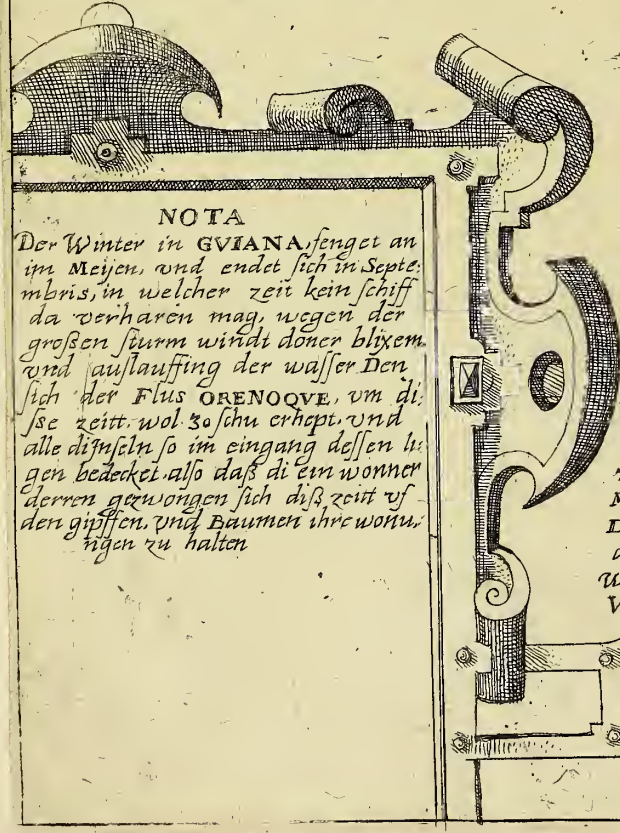 NOTA
Der Winter in GVIANA, fenget an
im Meijen, vnd endet sich in Septe:
mbris, in welcher zeit kein schiff
da verharen mag, wegen der
großen sturm windt doner blixem
vnd auslauffing der wasser Den
sich der Flus ORENOQVE, vm di:
sse zeitt. wol 30 schu erhept. vnd
alle diJnseln so im eingang dessen li:
gen bedecket. also daß di ein wonner
derren gezwongen sich diß zeitt vf
den gipffen, vnd Baumen ihre wonu:
ngen zu halten
M
D
a
V